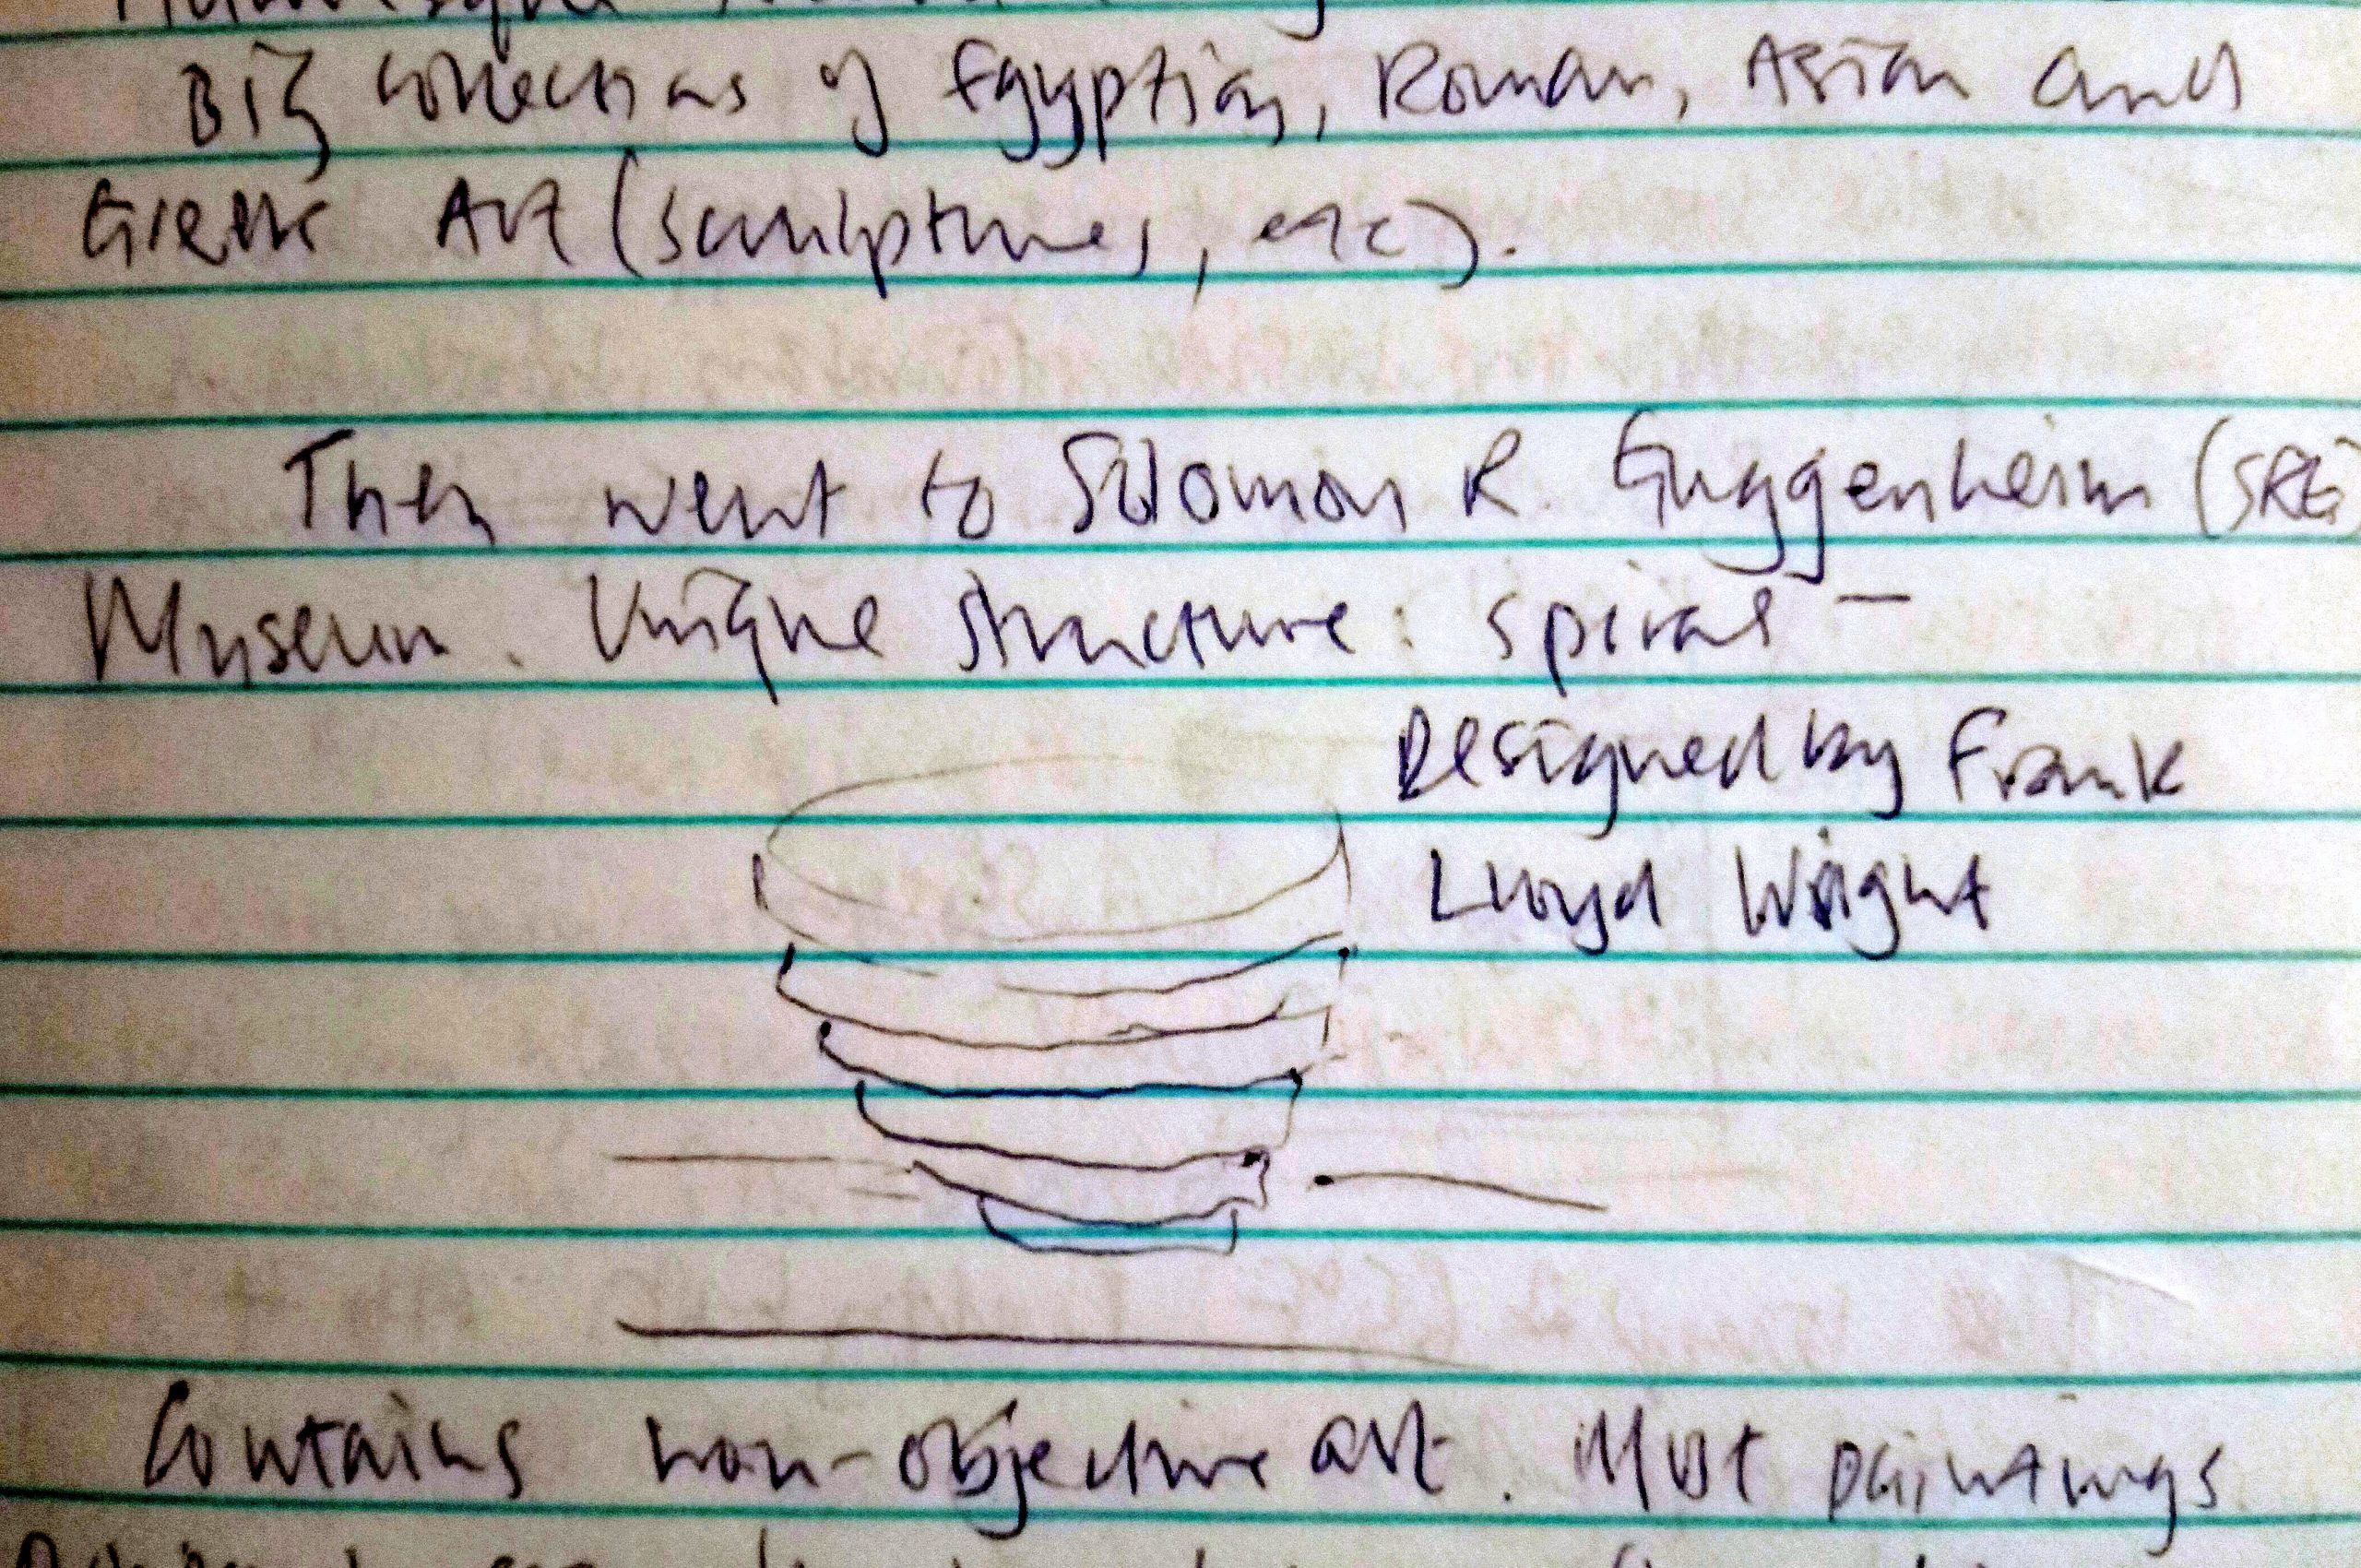 Big collections of Egyptian, Roman, Asian and
Greek Art (sculptures, etc).
Then went to Solomon R. Guggenheim (SRG)
Museum. Unique structure: spiral –
Designed by Frank
Lloyd Wright
Contains non-objective art. Most paintings